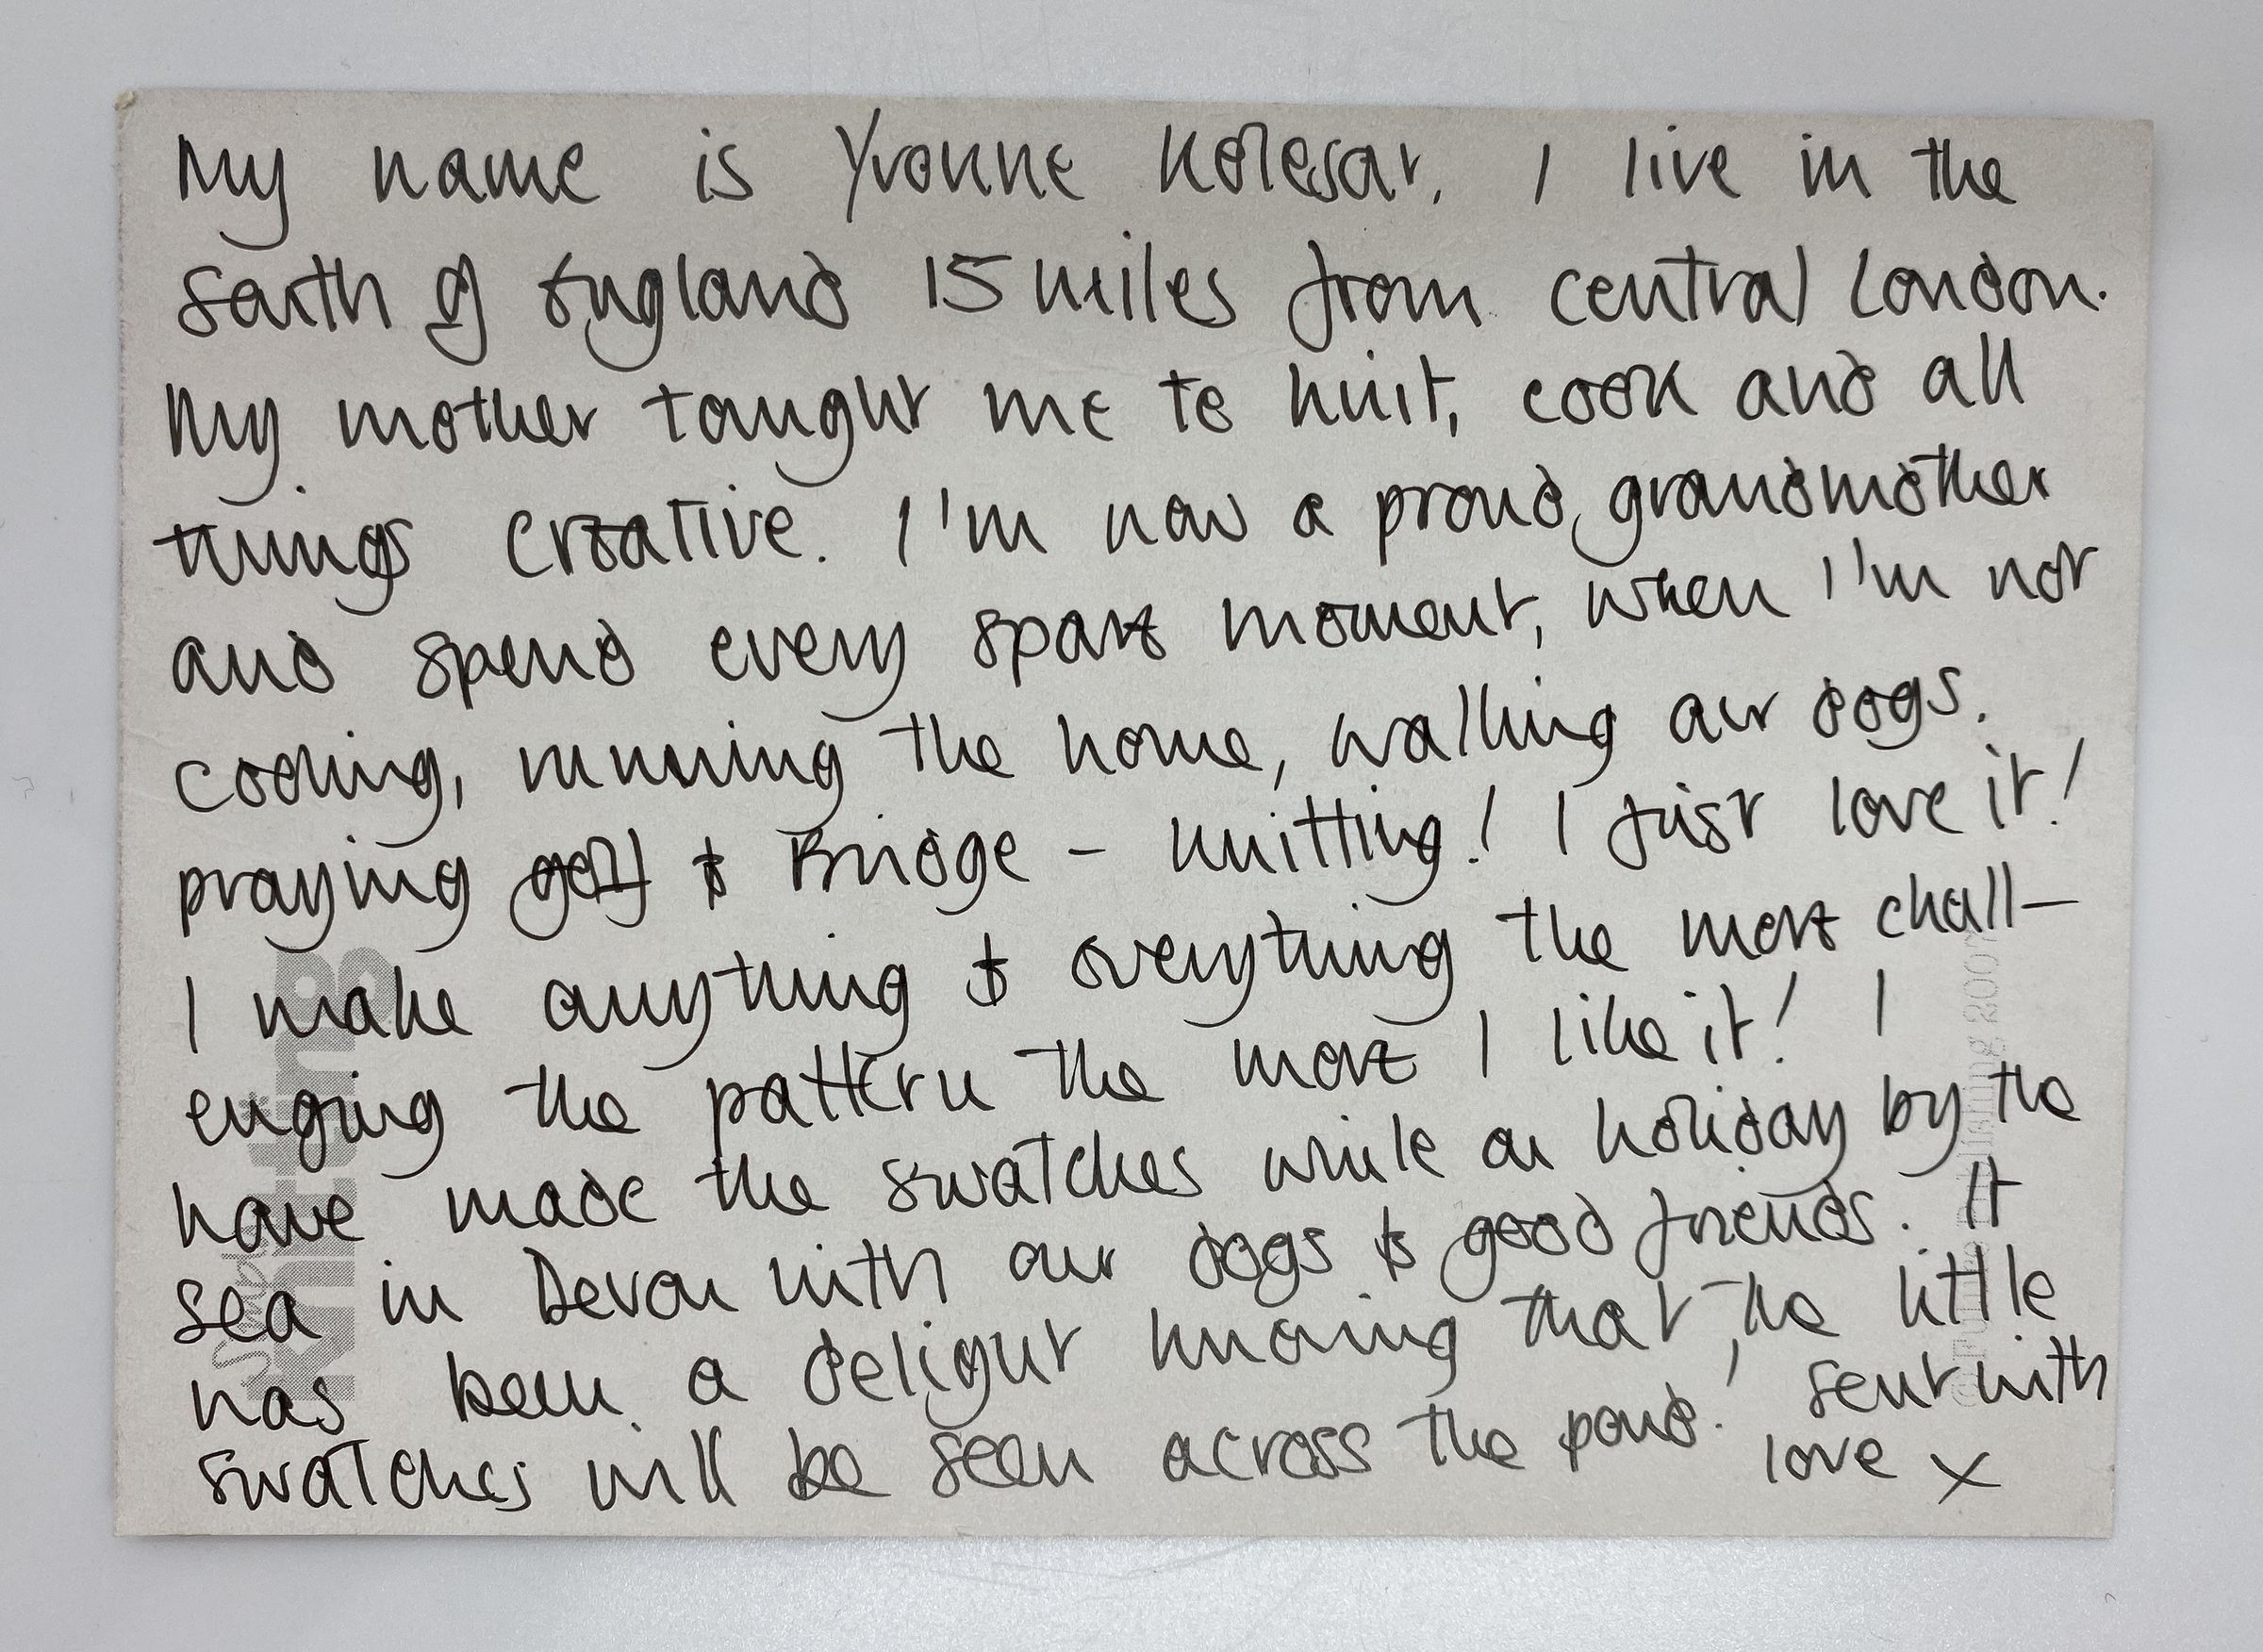 My name is Yvonne Kolesar. I live in the
South of England 15 miles from central London.
My mother taught me to knit, cook and all
things creative. I'm now a proud grandmother
and spend every spare moment, when I'm not
cooking, running the home, walking our dogs.
praying golf & Bridge - knitting! I just love it!
I make anything & everything the more chall-
enging the pattern the more I like it! I
have made the swatches while on holiday by the
sea in Devon with our dogs & good friends. It
has been a delight knowing that the little
swatches will be seen across the pond! sent with
love x
Knitting